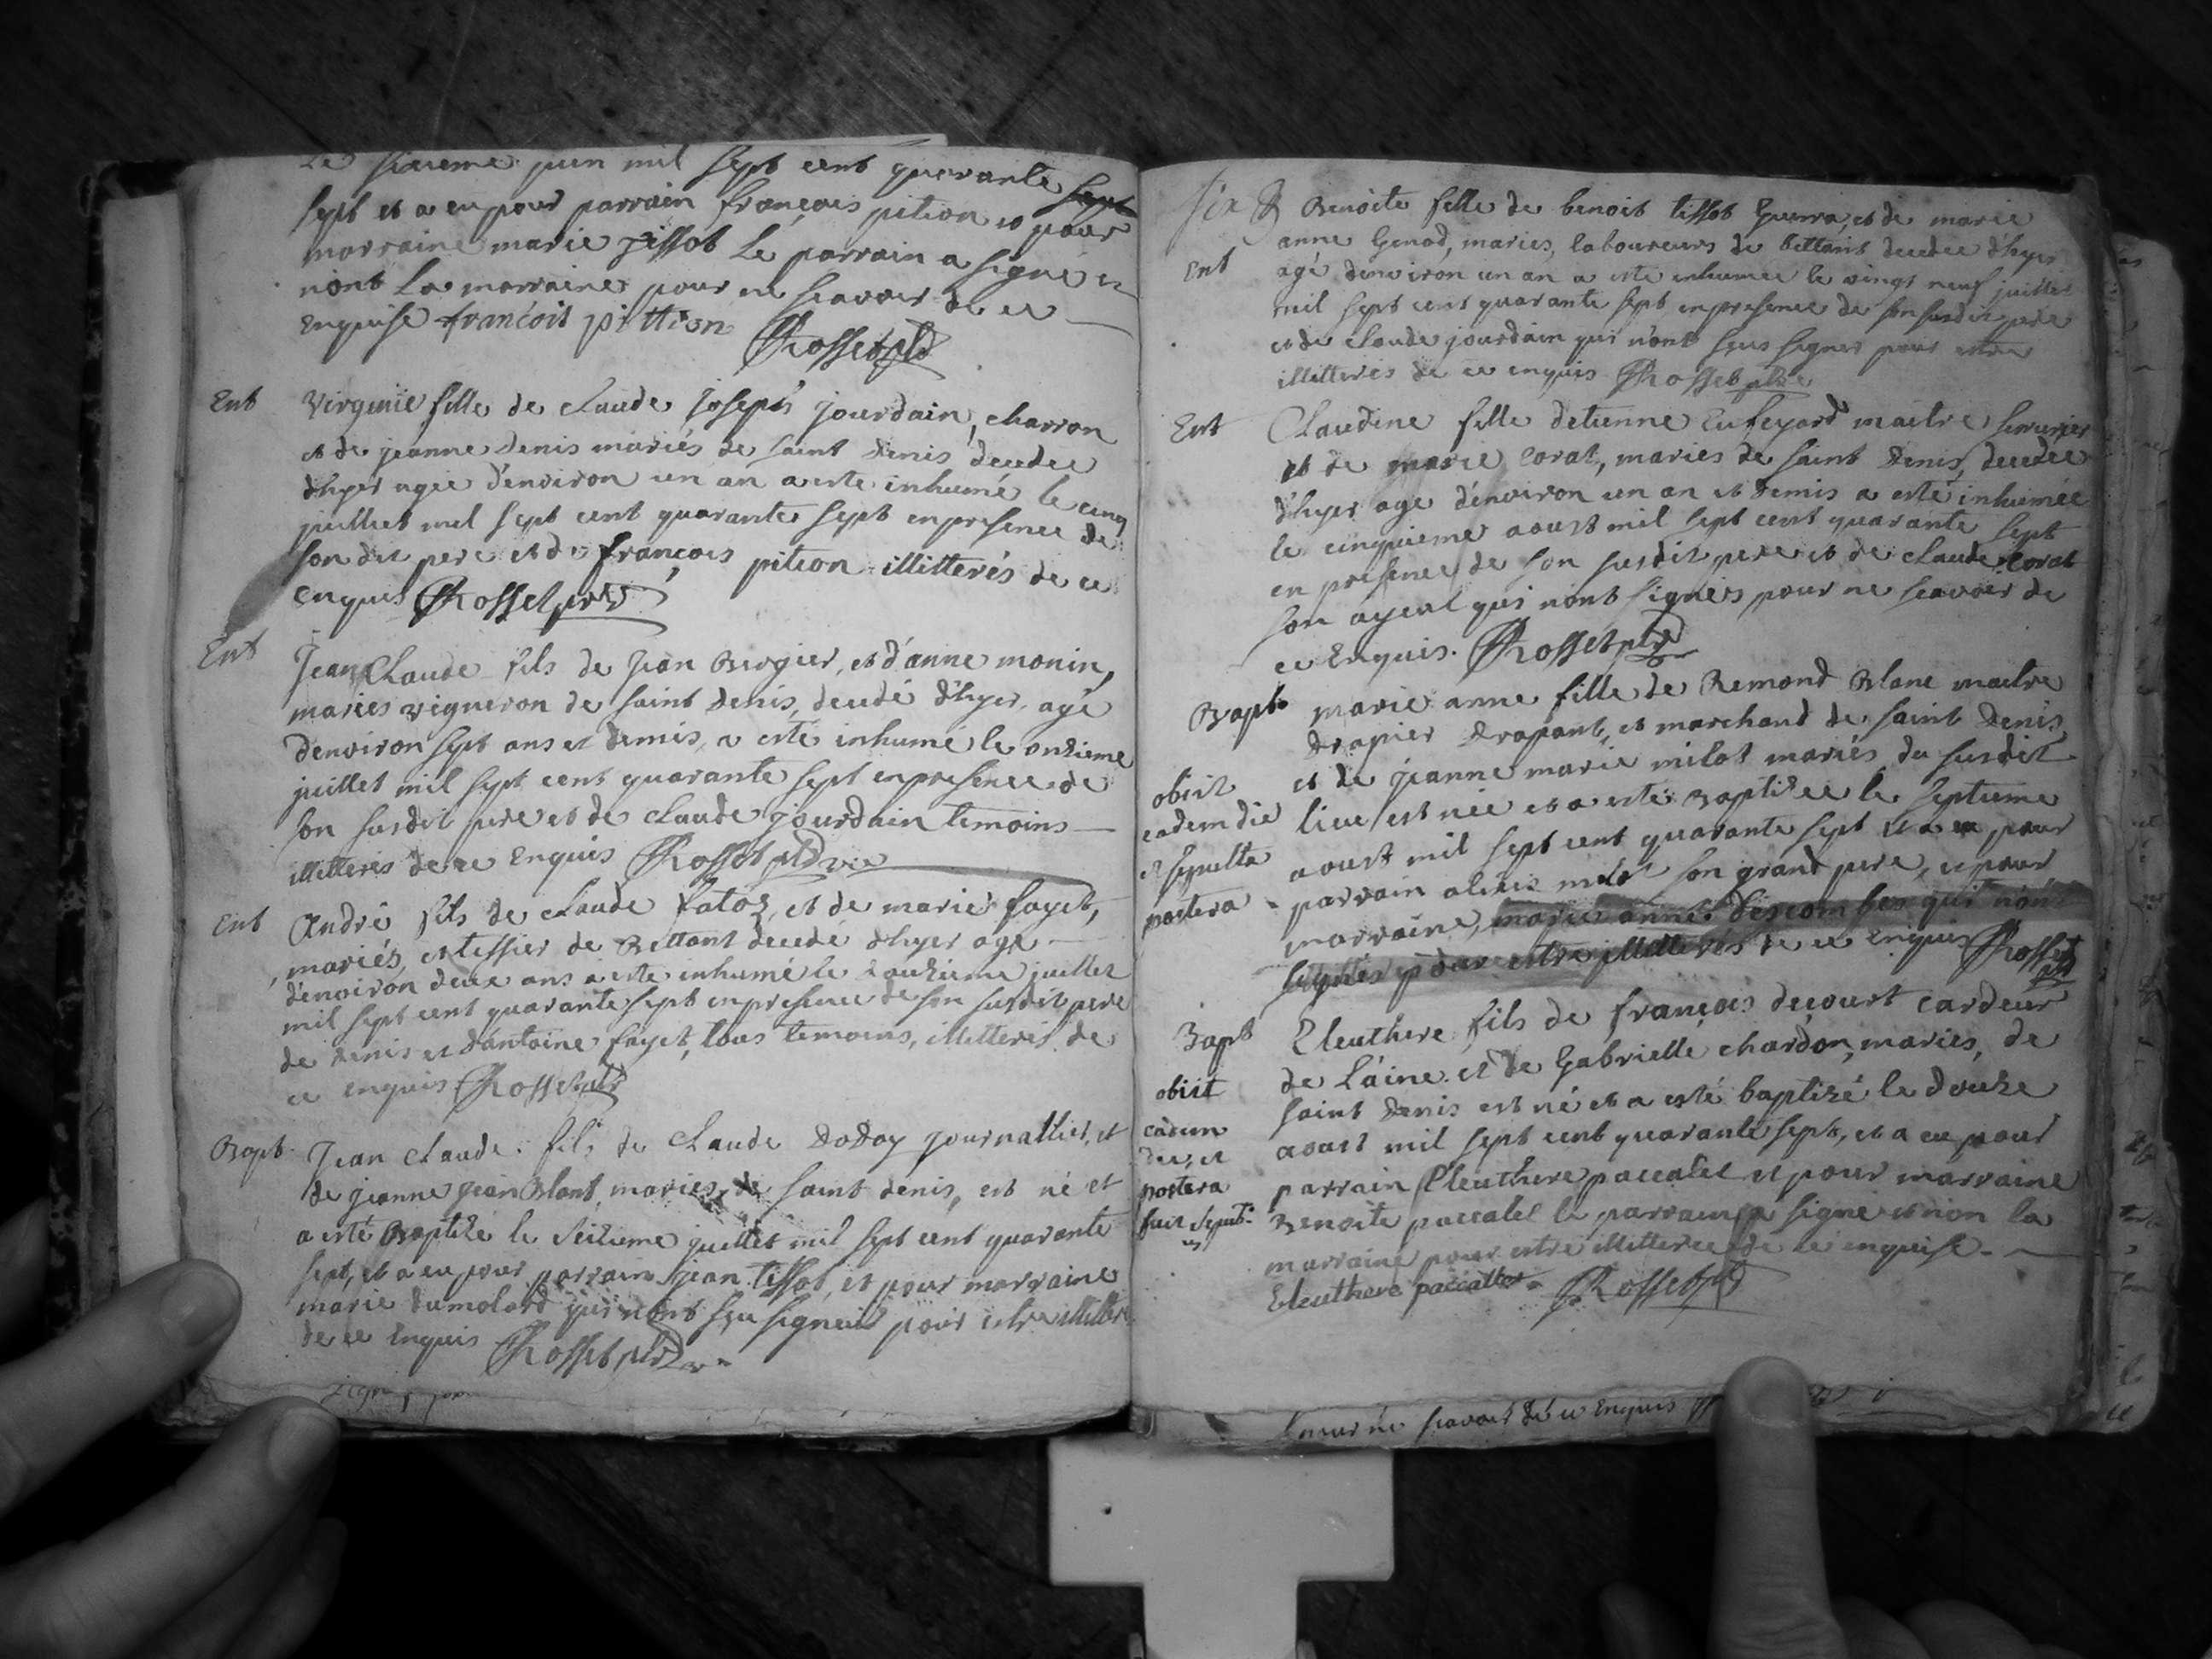 Le sixieme juin mil sept cent quarante sept
sept et a eu pour parrain françois pition et pour
marraine marie tissot Le parrain a signé et
nont La marraine pour ne scavoir de ce
Enquise françois pittion Rosset
Ent
Virginie fille de claude joseph jourdain, charron
et de jeanne denis mariés de saint denis, decedee
d'hyer agée d'environ un an a este inhumé le cinq
juillet mil sept cent quarante sept en presence de
son dit pere et de françois pition illitterés de ce
enquis Rosset
Ent
Jean Claude fils de Jean Brogier, et d'anne monin,
mariés vigneron de saint denis, decedé d'hyer, agé
d'environ sept ans et demis, a esté inhumé le onzieme
juillet mil sept cent quarante sept en presence de
son susdit pere et de claude jourdain temoins
illitterés de ce Enquis Rosset
Ent
André fils de claude et de marie fayet,
mariés, et tissier de Bettant decedé d'hyer age
d'environ deux ans a este inhumé le douzieme juillet
mil sept cent quarante sept en presence de son susdit pere
de denis et d'antoine fayet, tous temoins, illitterés de
ce enquis Rosset
Bapt
Jean claude fils de claude journallier, et
de jeanne jean Blant, mariés de saint denis, est né et
a esté Baptizé le seizieme juillet mil sept cent quarante
sept, et a eu pour parrain jean tissot, et pour marraine
marie dumolard qui nont sçu signer pour estre
de ce Enquis Rosset
six
Benoite fille de benoit tissot et de marie
anne Genod, mariés, laboureurs de bettant decedee d'hyer
Ent
agé d'environ un an a esté inhumée le vingt neuf juillet
mil sept cent quarante sept en presence de son susdit pere
et de claude jourdain qui n'ont sçus signer pour estre
illitterés de ce enquis Rosset
Ent
Claudine fille detienne maitre serrurier
et de marie corat, mariés de saint denis, decedee
d'hyer age d'environ un an et demis a esté inhumée
le cinquieme aoust mil sept cent quarante sept
en presence de son susdit pere et de claude corat
son ayeul qui nont signés pour ne scavoir de
ce Enquis. Rosset
Bapt
marie anne fille de Remond Blanc maitre
drapier drapant, et marchand de saint denis
et de jeanne marie milot mariés du susdit
obiit
eadem die
et sepulta
postera
lieu est née et a esté Baptizee le septieme
aoust mil sept cent quarante sept et a eu pour
parrain milot son grand pere, et pour
marraine, marie anne descombes qui n'ont
signés pour estre illitterés de ce enquis Rosset
Bapt
Eleuthere fils de françois decourt cardeur
de Laine et de Gabrielle chardon, mariés, de
obiit
eadem
die, et
postera
fuit
saint denis est né et a esté baptizé le douze
aoust mil sept cent quarante sept, et a eu pour
parrain Eleuthere paccalet et pour marraine
Benoite paccalet le parrain a signé et non la
marraine pour estre illitteree de ce enquise
Eleuthere paccallet Rosset
pour ne scavoir de ce Enquis